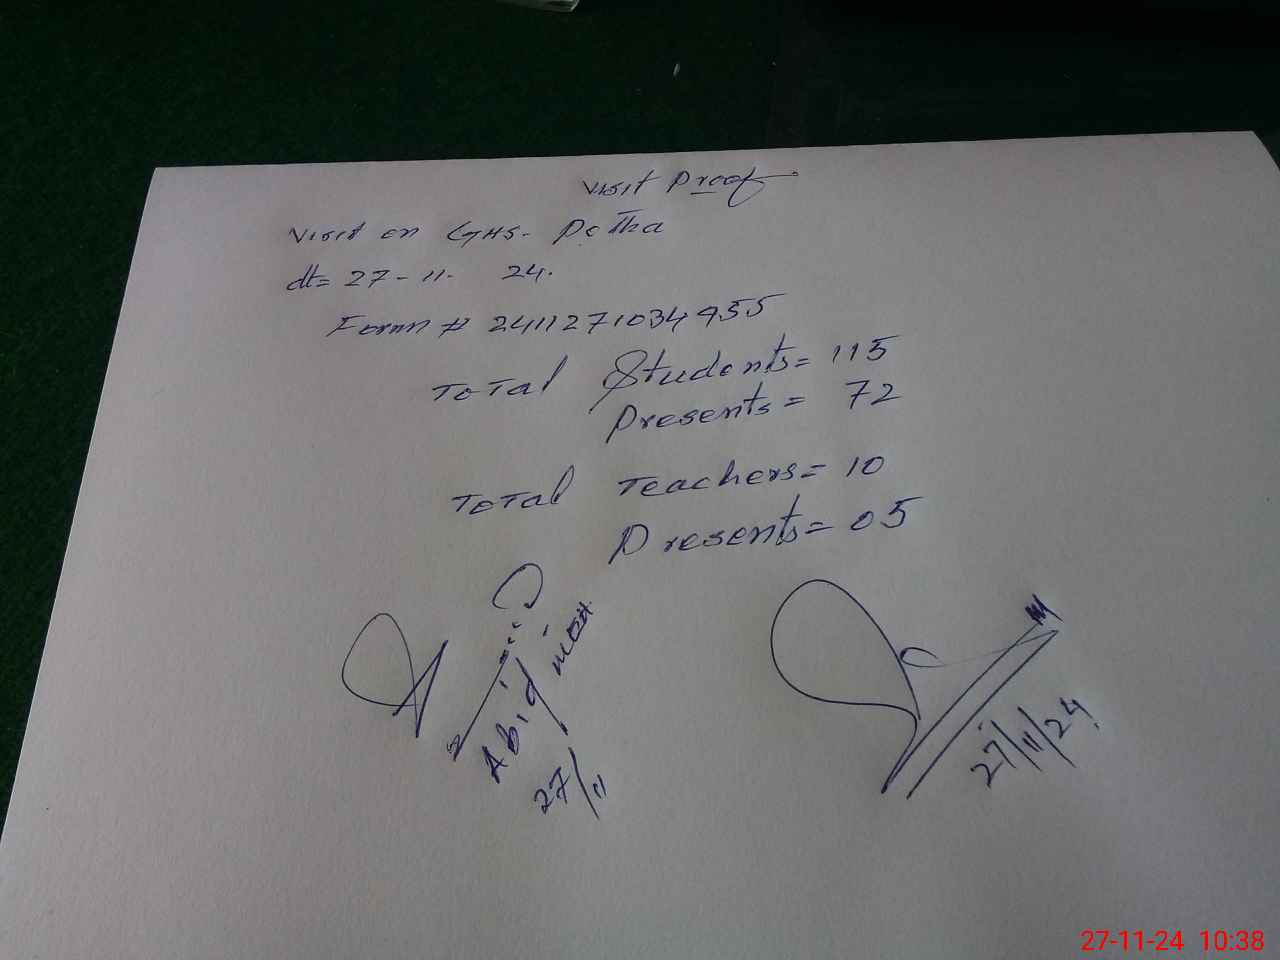 Visit Proof
Visit on GHS. Potha
dt= 27-11- 24.
Form # 2411271034955
Total Students= 115
Presents= 72
Total Teachers= 10
Presents= 05
Abid
27/11
27/11/24
27-11-24 10:38